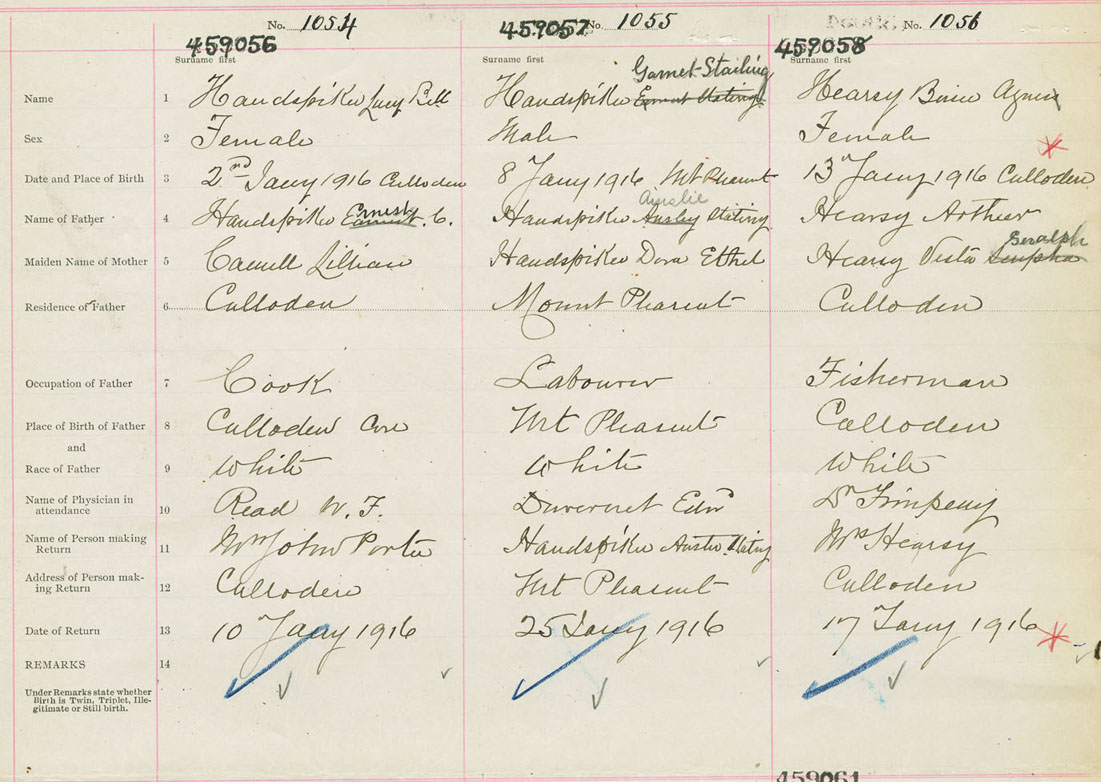 No. 1054 No. 1055 No. 1056
459056 459057 459058
Surname first Surname first Surname first
Garnet Stailing
Name 1 Handspiker Lucy Bell Handspiker Hearsy Agnes
Sex 2 Female Male Female
Date and Place of Birth 3 2nd Jany 1916 Culloden 8 Jany 1916 Mt Pleasant 13 Jany 1916 Culloden
Ernest Ainslie
Name of Father 4 Handspiker C. Handspiker Ansley Stating Hearsy Arthur
Seralph
Maiden Name of Mother 5 Lillian Handspiker Dora Ethel Hearsy Vesta
Residence of Father 6 Culloden Mount Pleasant Culloden
Occupation of Father 7 Cook Labourer Fisherman
Place of Birth of Father 8 Culloden Cove Mt Pleasant Culloden
and
Race of Father 9 White White White
Name of Physician in
attendance 10 Read W. F. Duvernet Edw Dr
Name of Person making
Return 11 Mrs John Porter Handspiker Mrs Hearsy
Address of Person mak-
ing Return 12 Culloden Mt Pleasant Culloden
Date of Return 13 10 Jany 1916 25 Jany 1916 17 Jany 1916
REMARKS 14
Under Remarks state whether
Birth is Twin, Triplet, Ille-
gitimate or Still birth.
459061